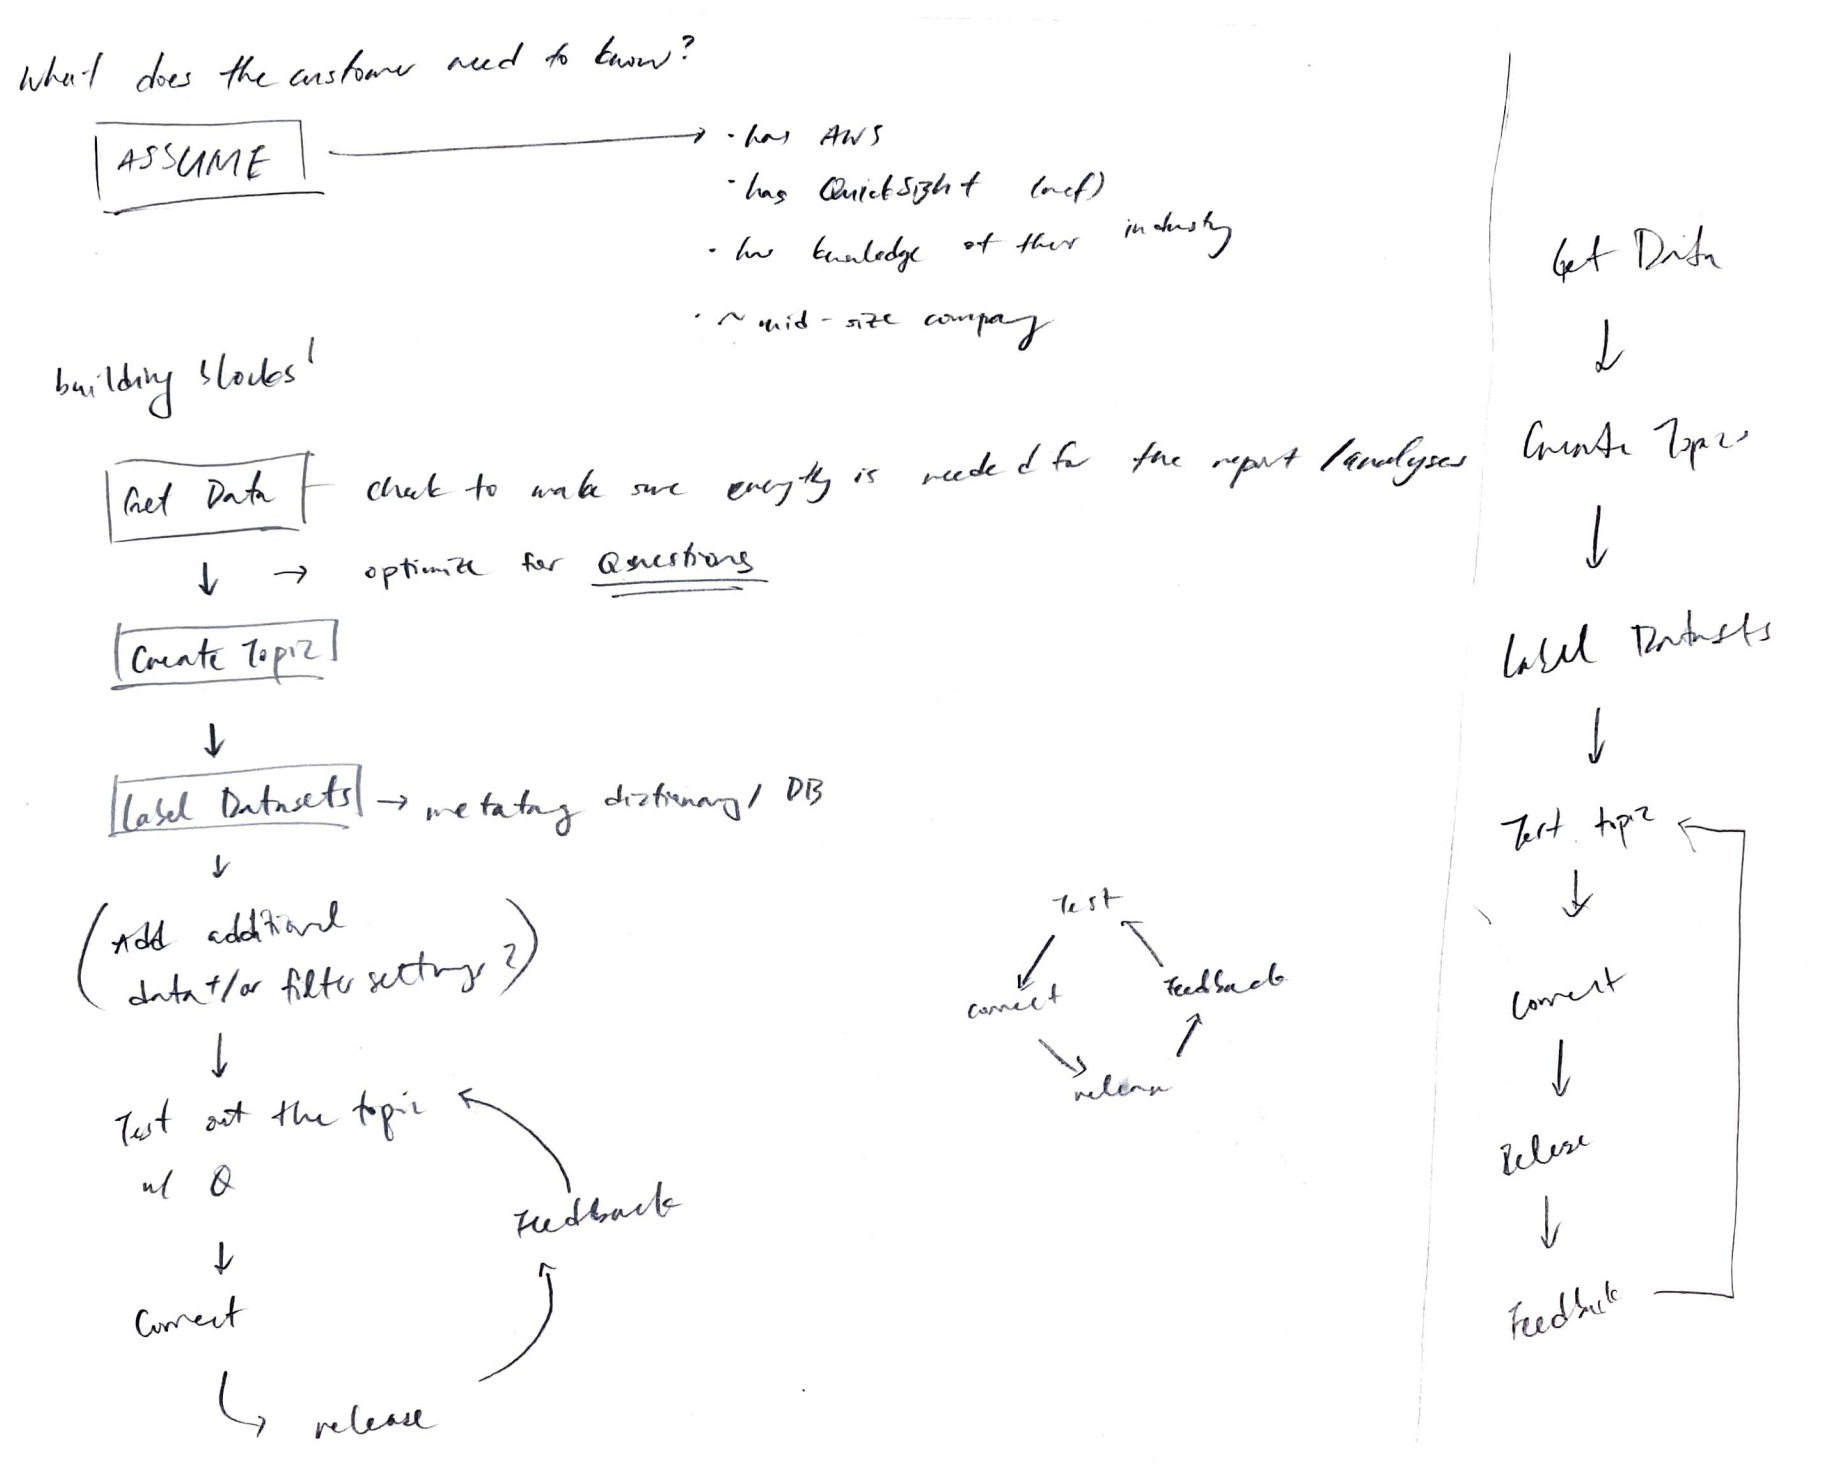 What does the customer need to know?
ASSUME
· has AWS
· has QuickSight
· has knowledge of their industry
· ~ mid-size company
building blocks!
Get Data
check to make sure everything is needed for the report / analyses
→ optimize for Questions
Create Topic
Label Datasets → metatag dictionary / DB
(Add additional
data +/or filter settings?)
Test out the topic
w/ Q
Feedback
Correct
release
Test
Correct
Feedback
release
Get Data
Create Topic
Label Datasets
Test topic
Correct
Release
Feedback